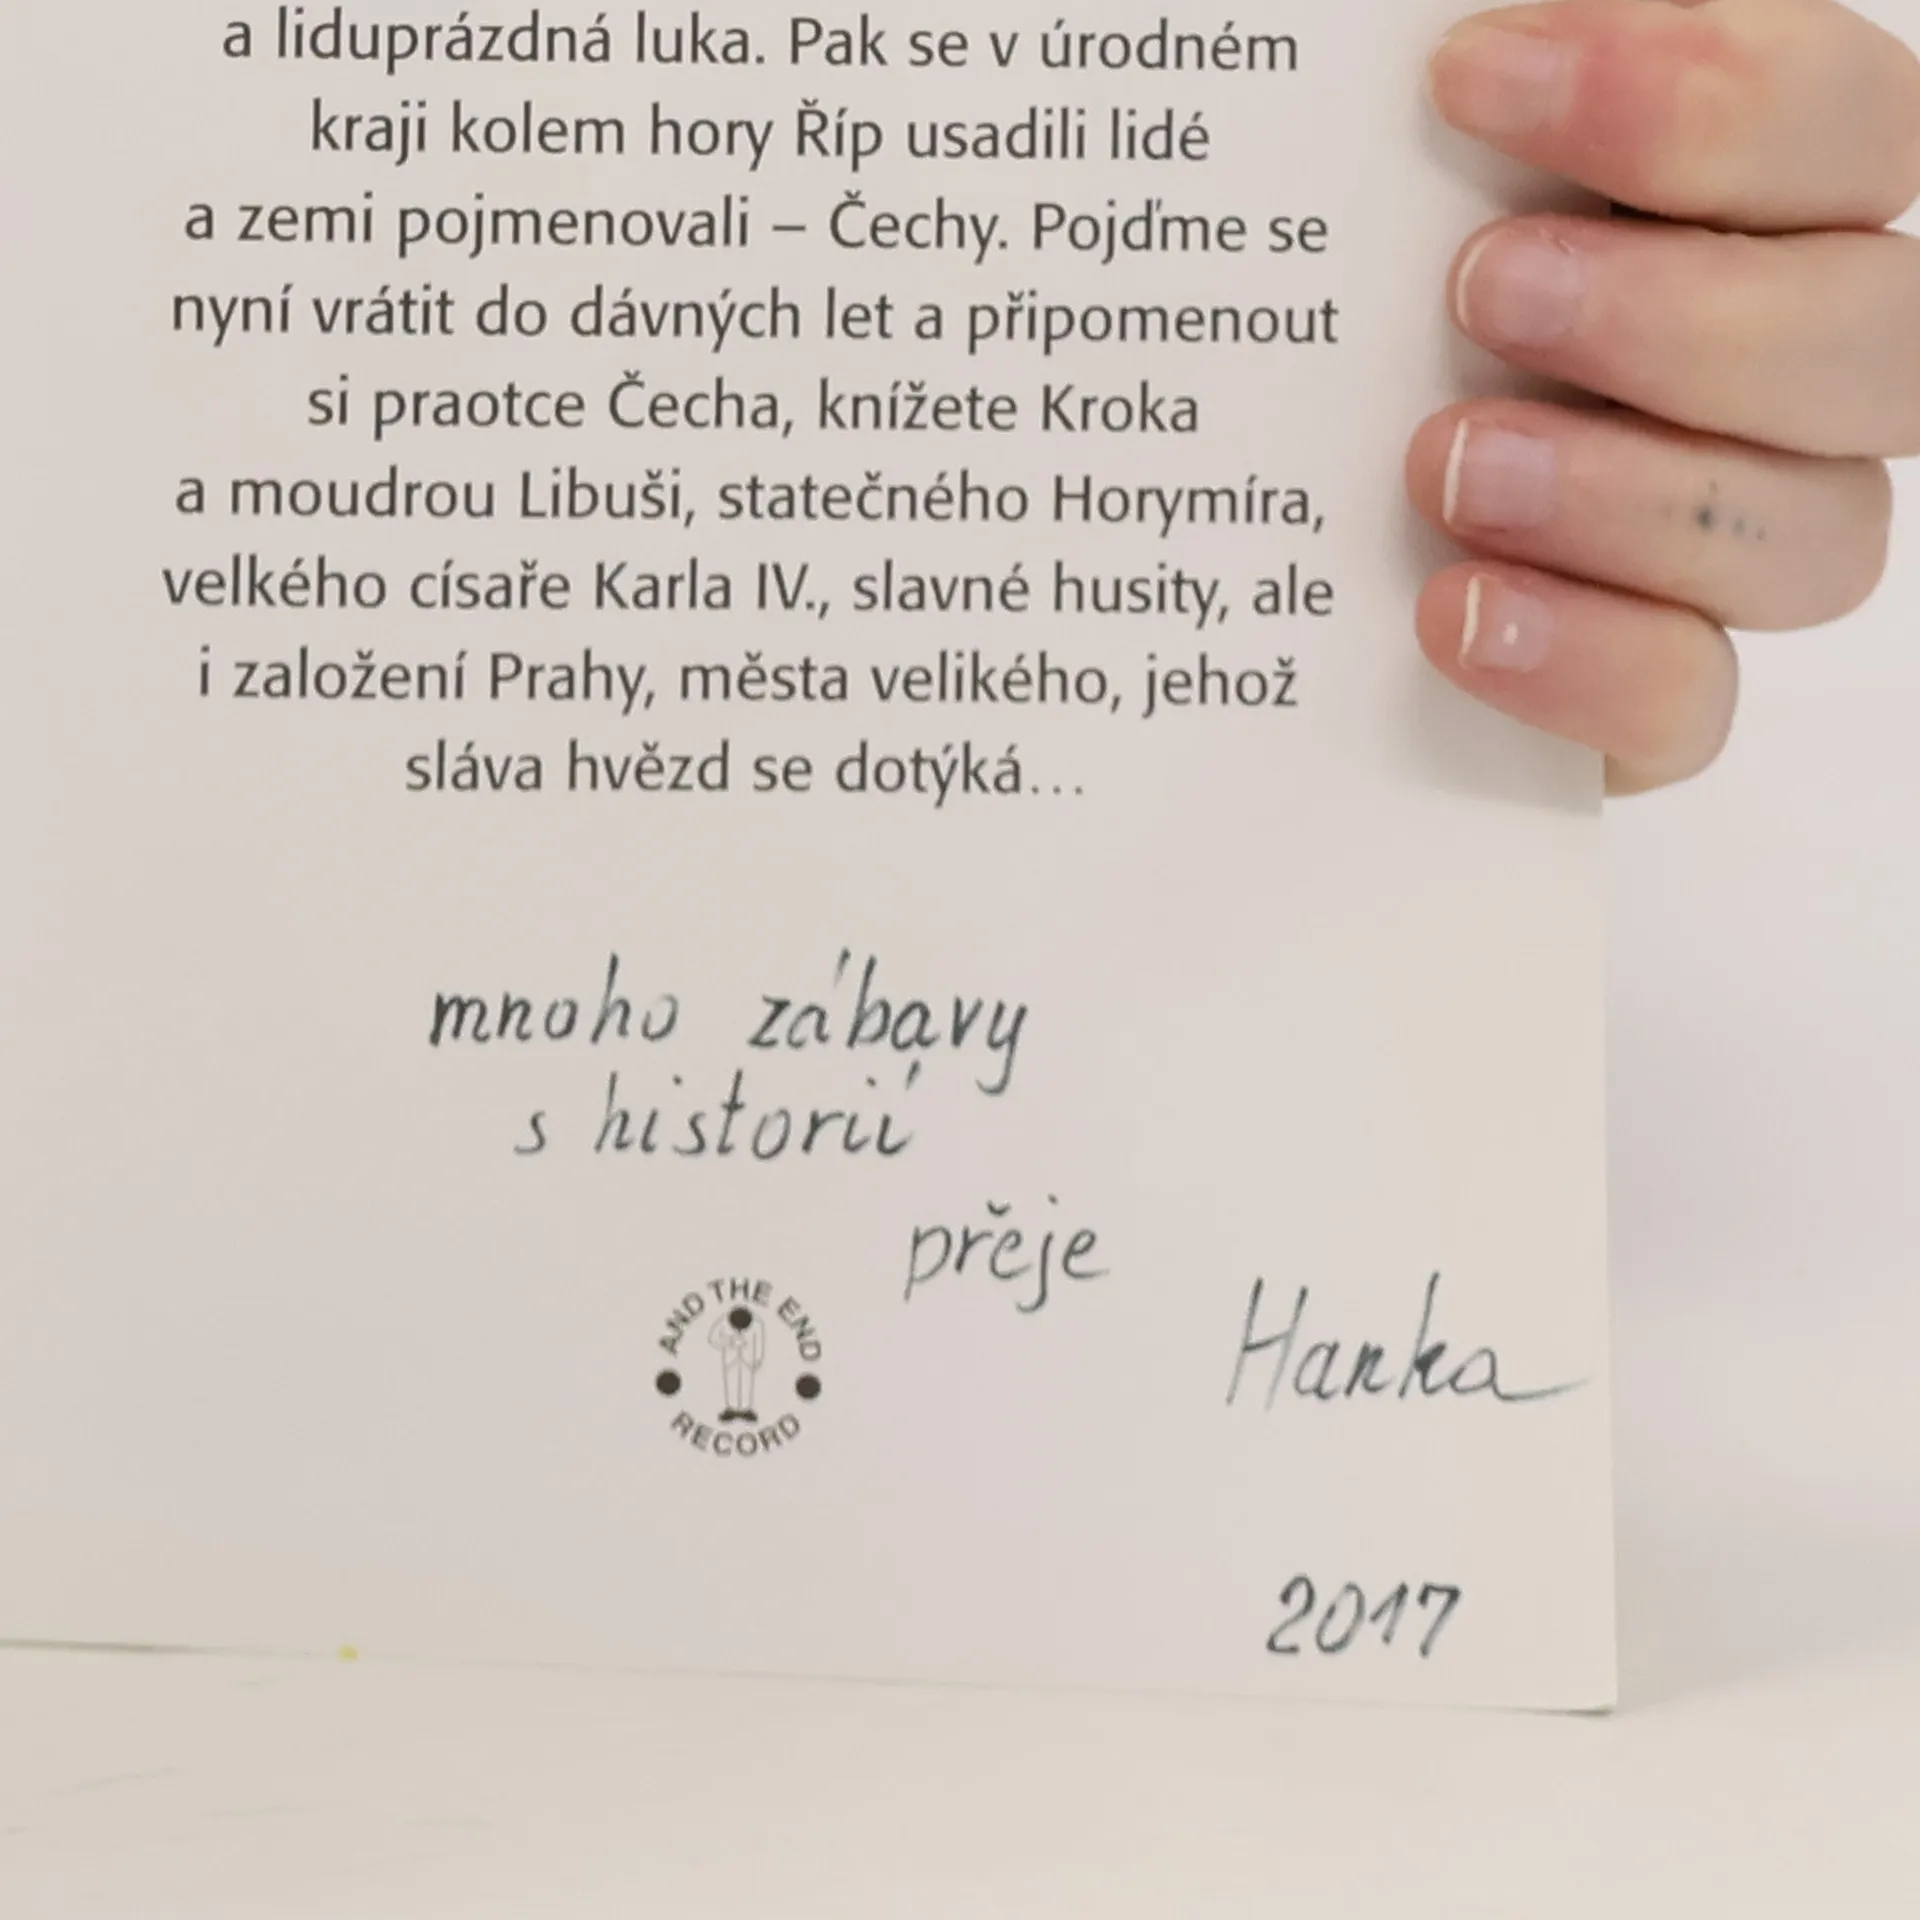 a liduprázdná luka. Pak se v úrodném
kraji kolem hory Říp usadili lidé
a zemi pojmenovali – Čechy. Pojďme se
nyní vrátit do dávných let a připomenout
si praotce Čecha, knížete Kroka
a moudrou Libuši, statečného Horymíra,
velkého císaře Karla IV., slavné husity, ale
i založení Prahy, města velikého, jehož
sláva hvězd se dotýká...
mnoho zábavy
s historií
přeje
Hanka
AND THE END
RECORD
2017